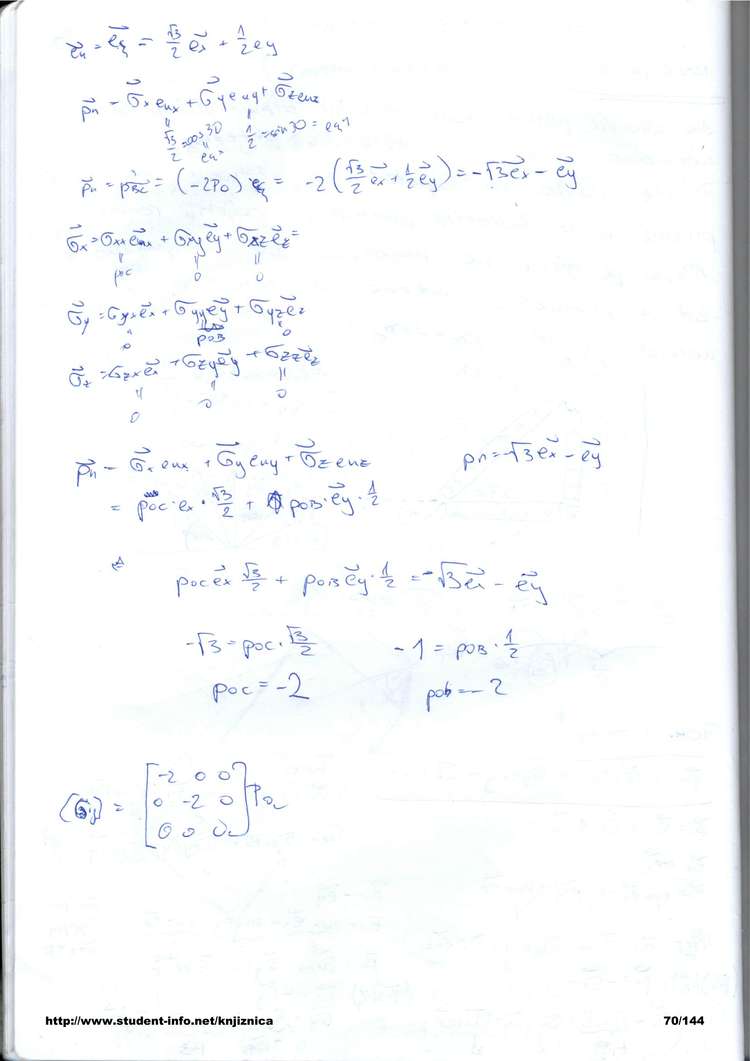 e⃗n = e⃗ξ = √3/2 e⃗x + 1/2 ey
p⃗n = σ⃗x enx + σ⃗y eny + σ⃗z enz
√3/2 = cos30   1/2 = sin30
p⃗n = p⃗BC = (-2P0) eξ = -2 (√3/2 e⃗x + 1/2 e⃗y) = -√3 e⃗x - e⃗y
σ⃗x = σxx + σxy e⃗y + σxz e⃗z =
poc 0 0
σ⃗y = σyx e⃗x + σyy e⃗y + σyz e⃗z
0 pOB 0
σ⃗z = σzx e⃗x + σzy e⃗y + σzz e⃗z
0 0 0
p⃗n = σ⃗x enx + σ⃗y eny + σ⃗z enz   pn = -√3 e⃗x - e⃗y
= poc · ex · √3/2 + pOB · e⃗y · 1/2
poc e⃗x √3/2 + pOB e⃗y · 1/2 = -√3 e⃗x - e⃗y
-√3 = poc · √3/2   -1 = pOB · 1/2
poc = -2   pob = -2
[σij] = [-2 0 0
0 -2 0
0 0 0] Pa
http://www.student-info.net/knjiznica 70/144